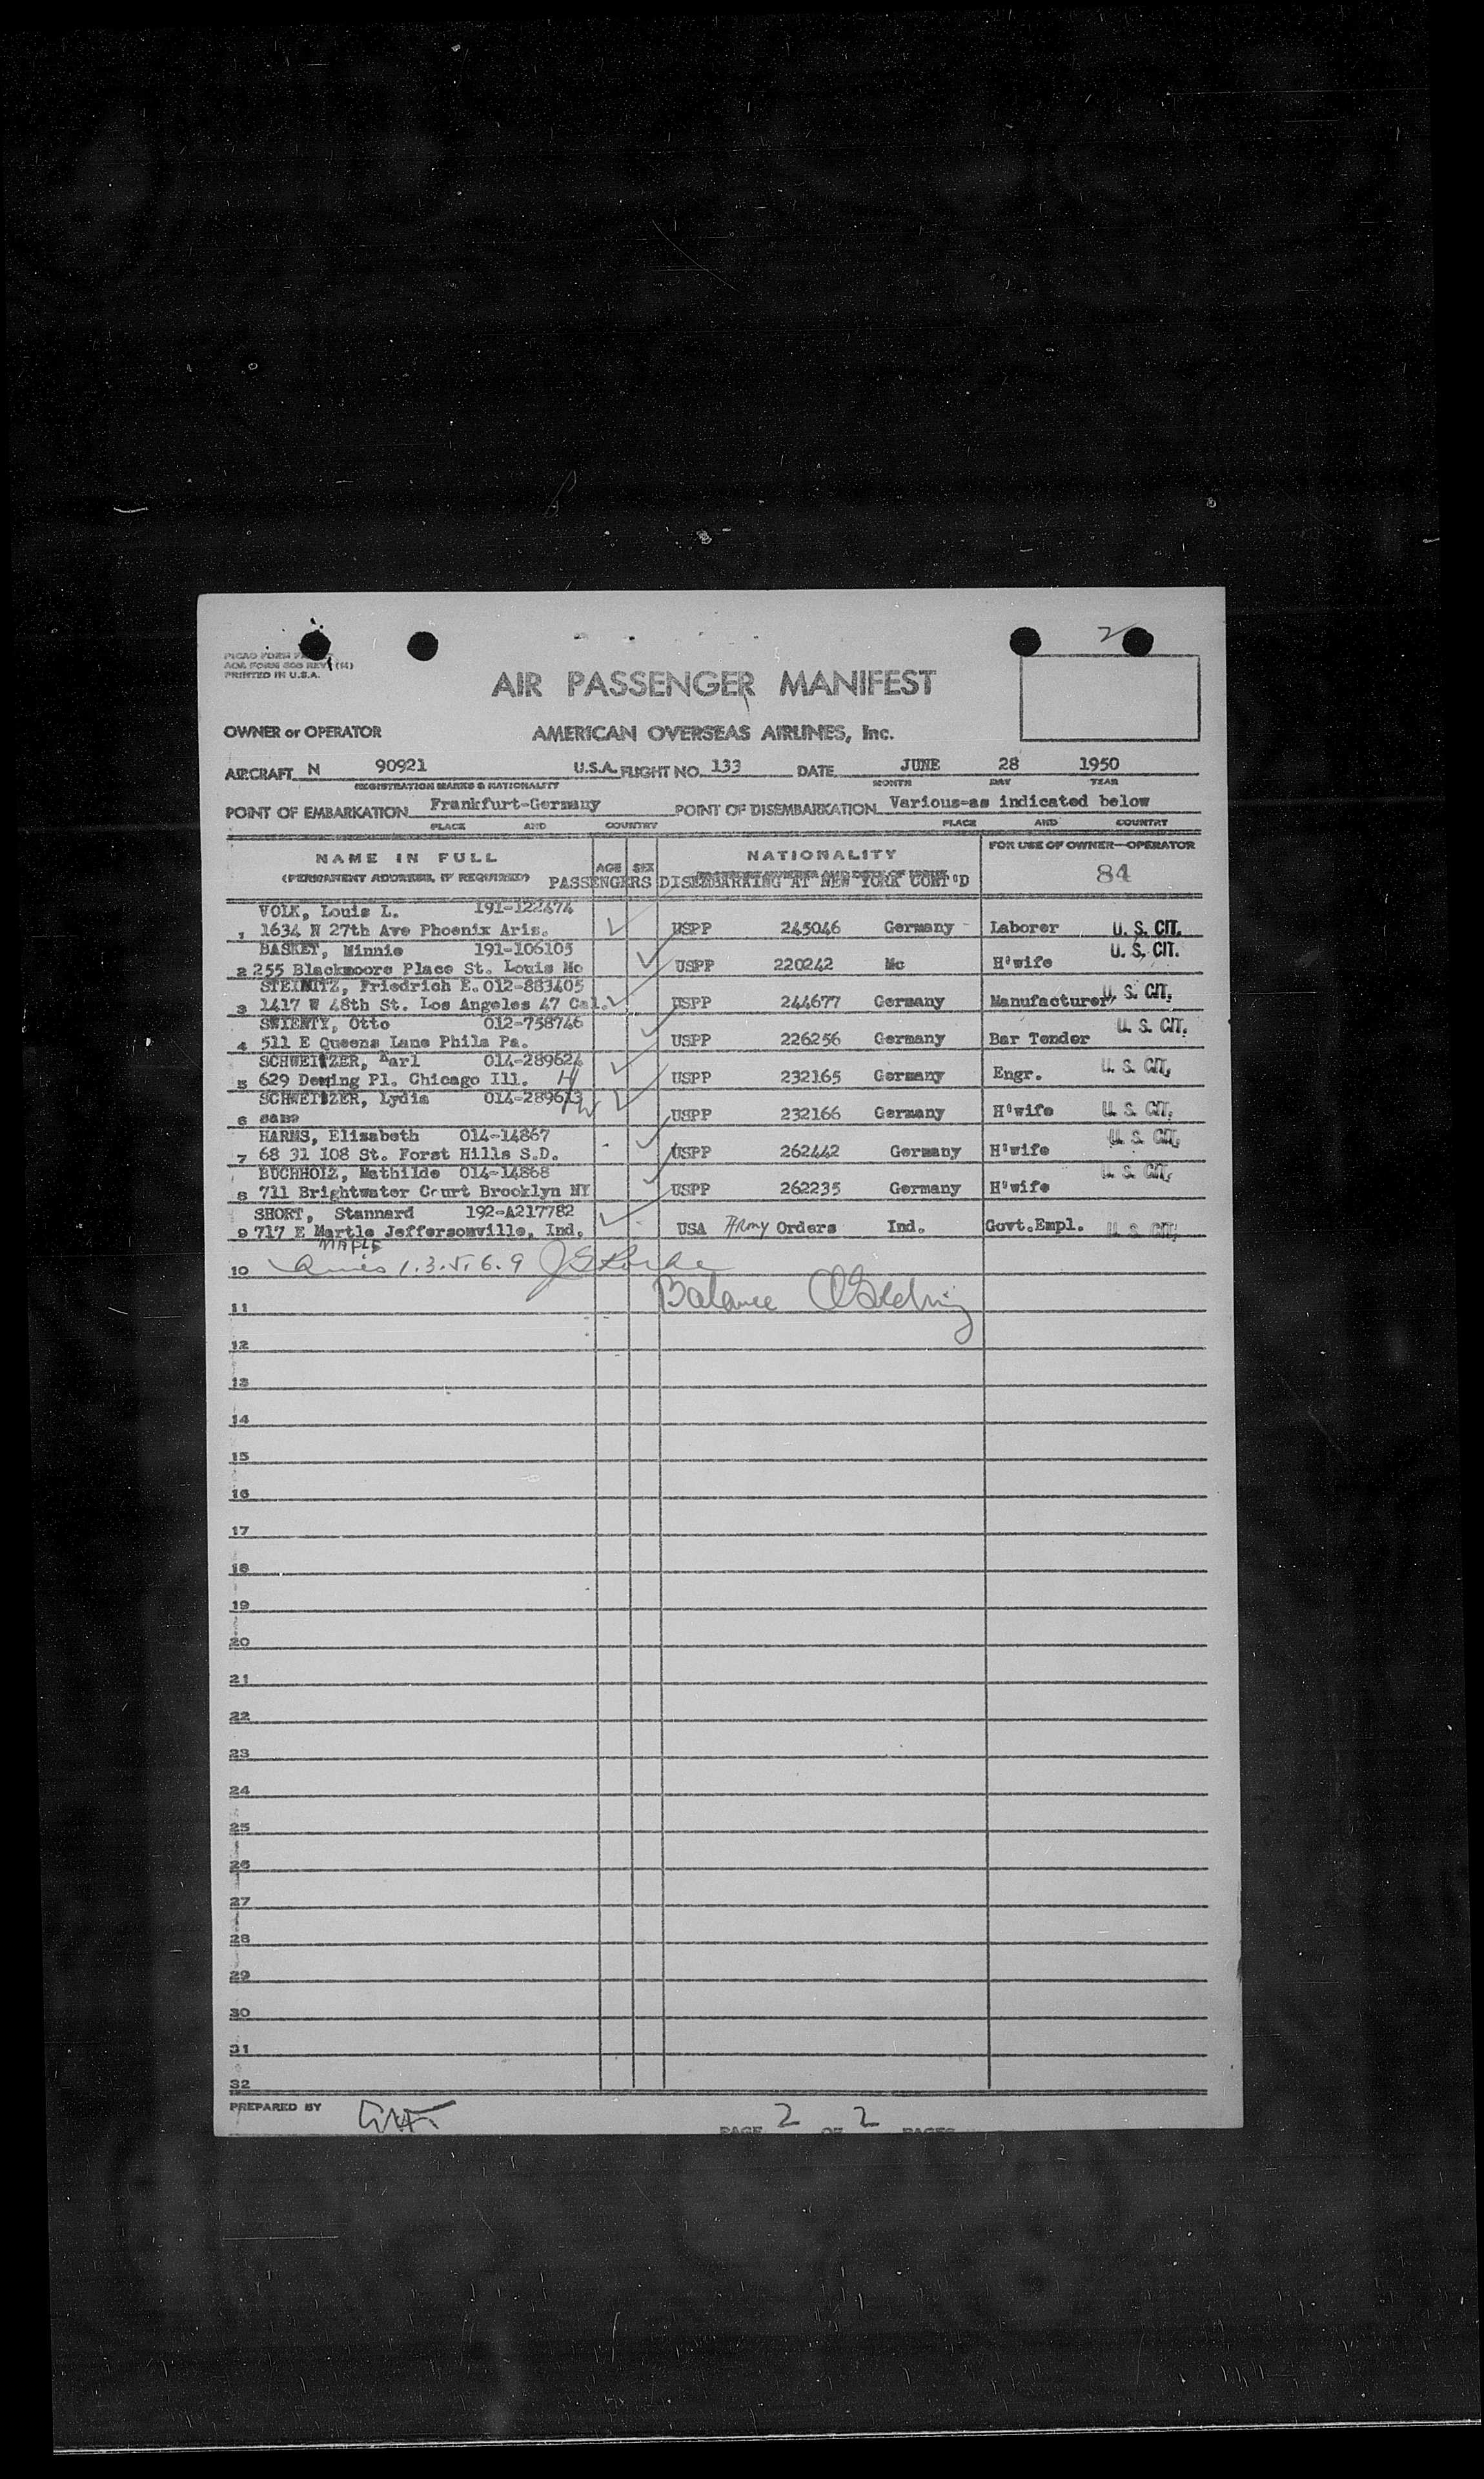 2
AOA FORM 606 REV. (14)
PRINTED IN U.S.A.
AIR PASSENGER MANIFEST
OWNER or OPERATOR AMERICAN OVERSEAS AIRLINES, Inc.
AIRCRAFT N 90921 U.S.A. FLIGHT NO. 133 DATE JUNE 28 1950
REGISTRATION MARKS & NATIONALITY MONTH DAY YEAR
POINT OF EMBARKATION Frankfurt-Germany POINT OF DISEMBARKATION Various-as indicated below
PLACE AND COUNTRY PLACE AND COUNTRY
NAME IN FULL AGE SEX NATIONALITY FOR USE OF OWNER—OPERATOR
(PERMANENT ADDRESS, IF REQUIRED) 84
PASSENGERS DISEMBARKING AT NEW YORK CONT'D
VOLK, Louis L. 191-122474
1 1634 N 27th Ave Phoenix Aris. USPP 245046 Germany Laborer U. S. CIT.
BASKET, Minnie 191-106105
2 255 Blackmoore Place St. Louis Mo USPP 220242 Mo H'wife U. S. CIT.
STEINITZ, Friedrich E. 012-883405
3 1417 W 48th St. Los Angeles 47 Cal. USPP 244677 Germany Manufacturer U. S. CIT.
SWIENTY, Otto 012-758746
4 511 E Queens Lane Phila Pa. USPP 226256 Germany Bar Tender U. S. CIT.
SCHWEITZER, Karl 014-289624
5 629 Deming Pl. Chicago Ill. H USPP 232165 Germany Engr. U. S. CIT.
SCHWEITZER, Lydia 014-289623
6 same W USPP 232166 Germany H'wife U. S. CIT.
HARMS, Elisabeth 014-14867
7 68 31 108 St. Forst Hills S.D. USPP 262442 Germany H'wife U. S. CIT.
BUCHHOLZ, Mathilde 014-14868
8 711 Brightwater Court Brooklyn NY USPP 262235 Germany H'wife U. S. CIT.
SHORT, Stannard 192-A217782
9 717 E Martle Jeffersonville, Ind. USA Army Orders Ind. Govt.Empl. U. S. CIT.
MAPLE
10 1.3.5.6.9
11 Balance
12
13
14
15
16
17
18
19
20
21
22
23
24
25
26
27
28
29
30
31
32
PREPARED BY
PAGE 2 OF 2 PAGES